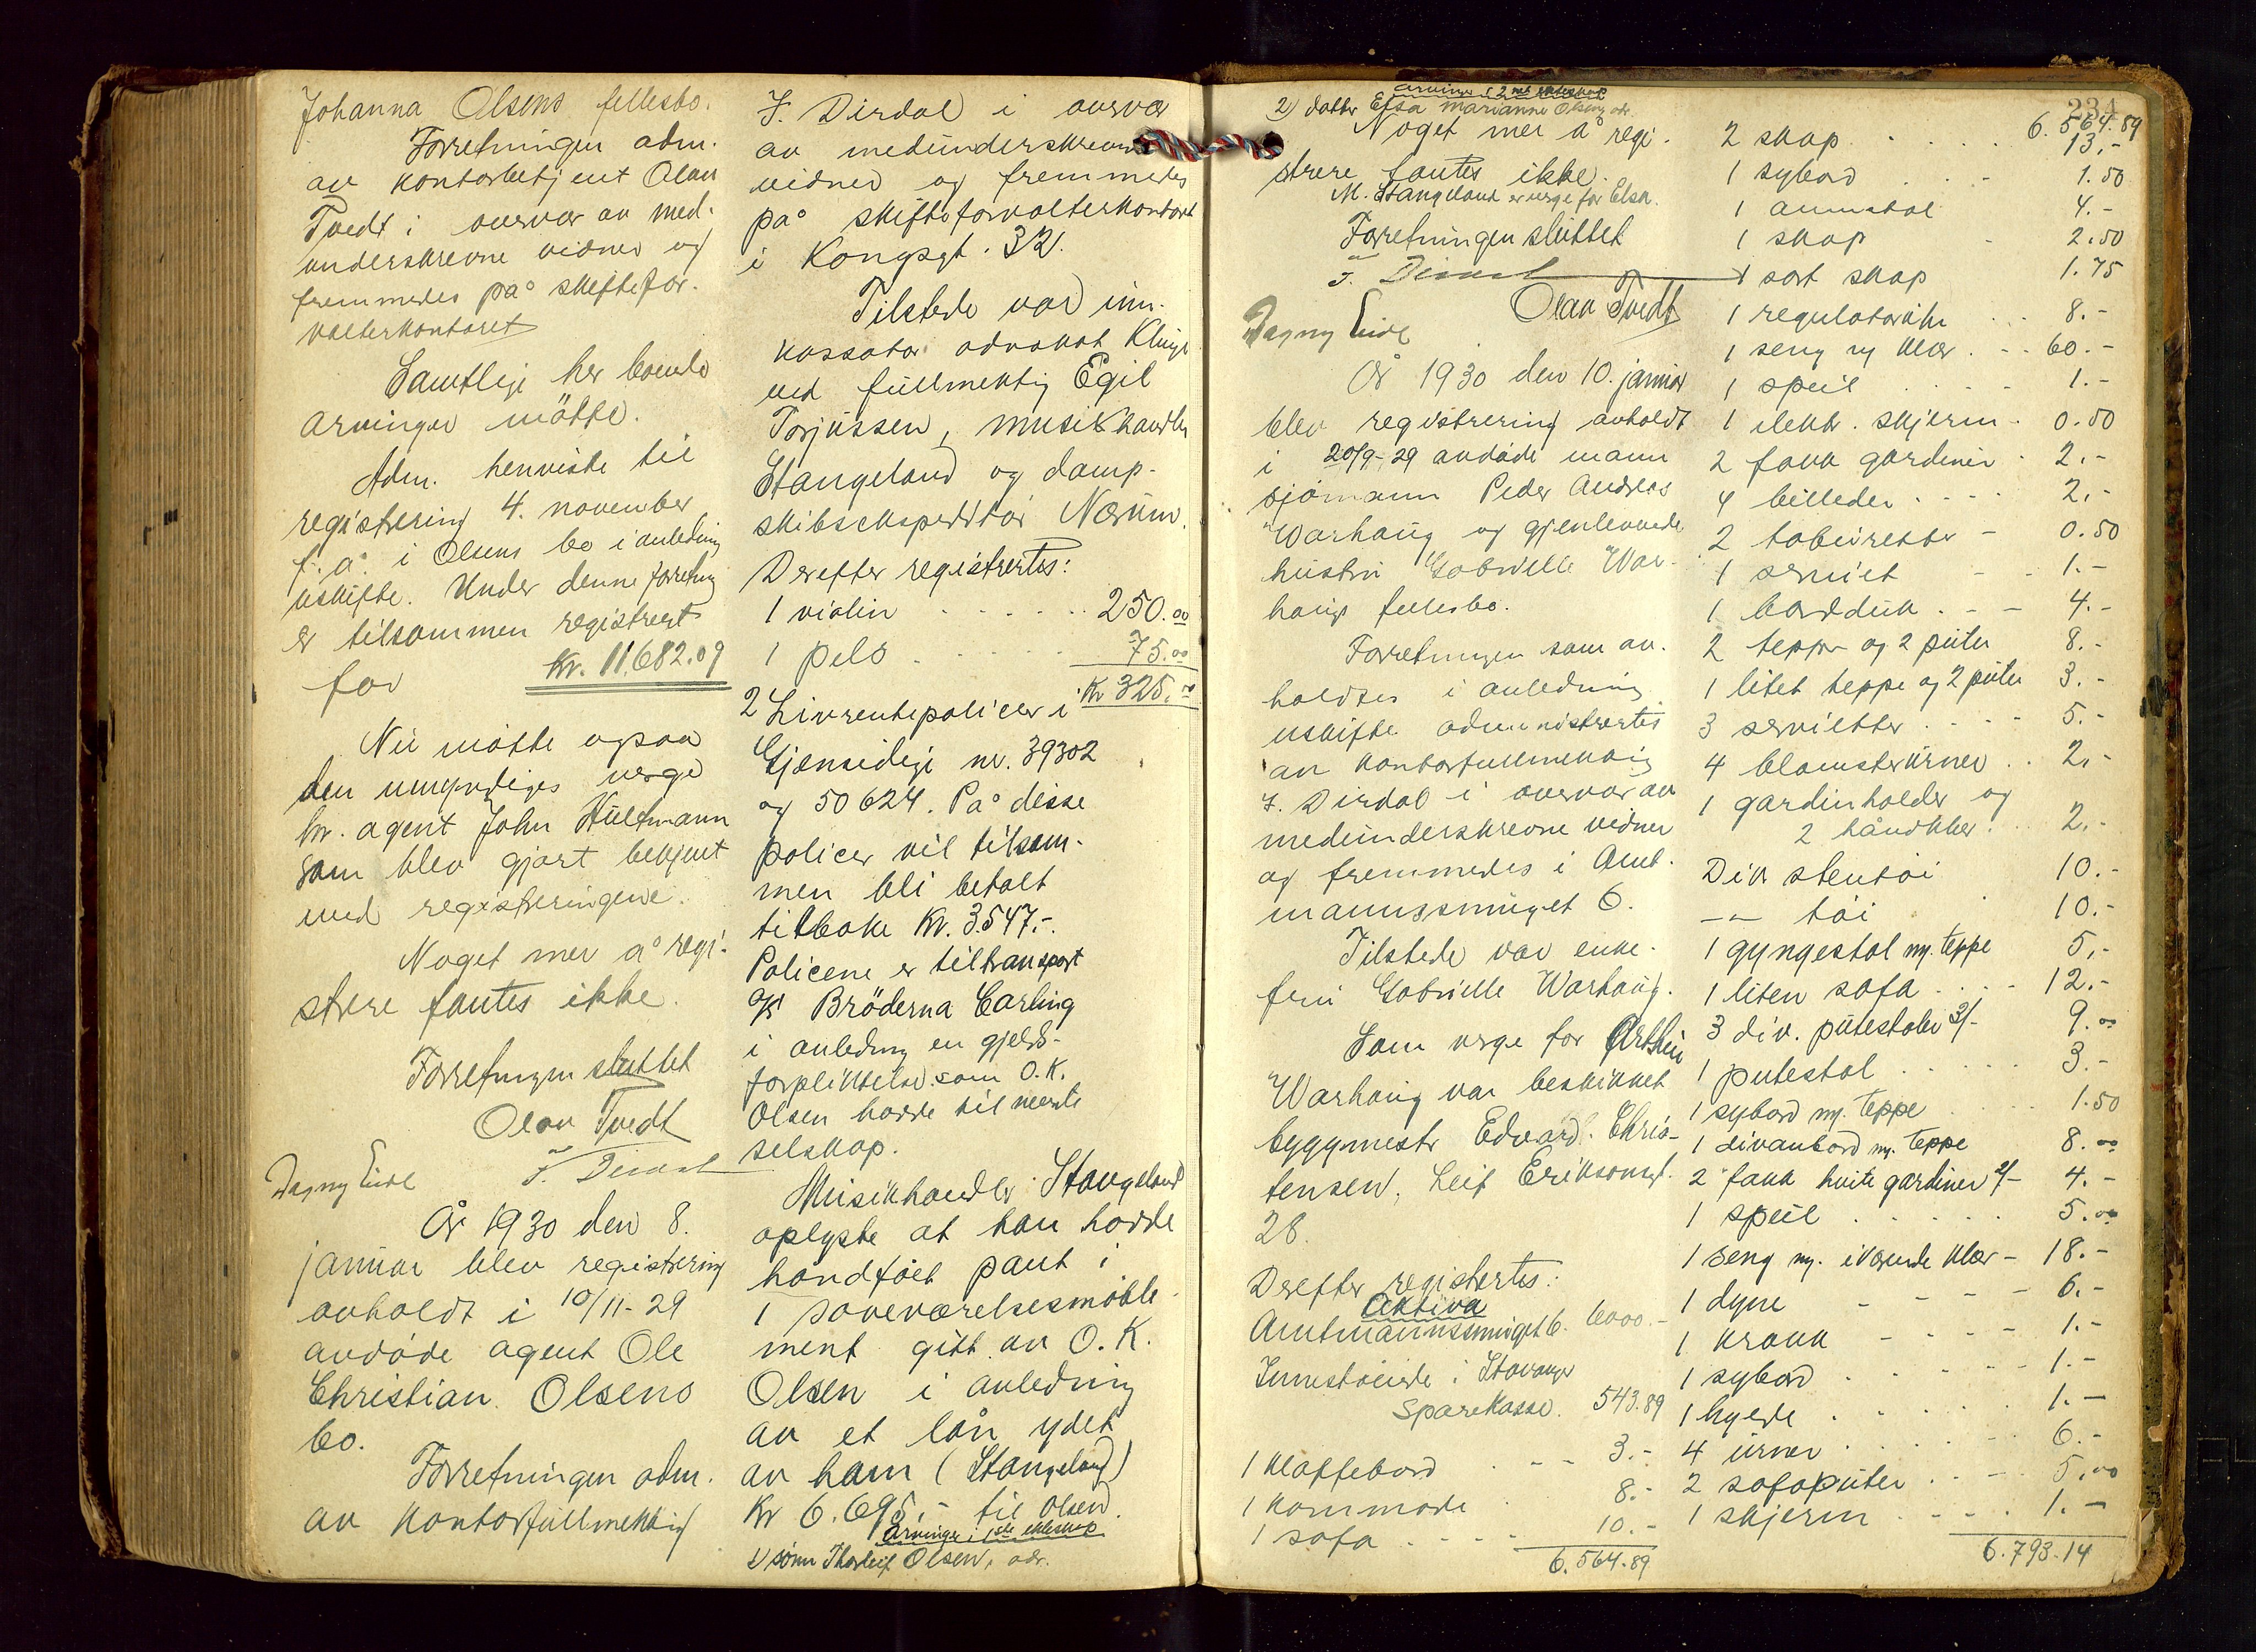 Johanna Olsens fellesbo.
Forretningen adm.
av kontorbetjent Olav
Tvedt i overvær av med-
underskrevne vidner og
fremmedes på skiftefor-
valterkontoret
Samtlige her boende
arvinger møtte.
Adm. henviste til
registrering 4. november
f. å. i Olsens bo i anledning
uskifte. Under denne forretning
er tilsammen registrert
for Kr. 11.682.09
Nu møtte ogsaa
den umyndiges verge
hr. agent John Hultmann
som blev gjort bekjent
med registreringene.
Noget mer å regi-
strere fantes ikke.
Forretningen sluttet
Olav Tvedt
Dagny Eide J. Dirdal
År 1930 den 8.
januar blev registrering
avholdt i 10/11-29
avdøde agent Ole
Christian Olsens
bo.
Forretningen adm.
av kontorfullmektig
J. Dirdal i overvær
av medunderskrevne
vidner og fremmedes
på skifteforvalterkontoret
i Kongsgt. 32.
Tilstede var inn-
kassator advokat Klinge
ved fullmektig Egil
Torjussen, musikhandler
Stangeland og damp-
skibsekspeditør Nærum.
Derefter registrertes:
1 violin . . . . . . 250.00
1 pels . . . . . 75.00
Kr 325.00
2 Livrentepolicer i
Gjensidige nr. 39302
og 50624. På disse
policer vil tilsam-
men bli betalt
tilbake Kr. 3.547.-.
Policene er tiltransport
A/S Bröderna Carling
i anledning en gjelds-
forpliktelse som O.K.
Olsen hadde til nevnte
selskap.
Musikhandler Stangeland
oplyste at han hadde
håndfået pant i
1 soveværelsesmøble-
ment gitt av O.K.
Olsen i anledning
av et lån ydet
av ham (Stangeland)
Kr 6.695.- til Olsen.
Arvinger i 1ste ekteskap
1) sønn Thorleif Olsen, adr.
Arvinger i 2net ekteskap
2) datter Elsa Marianne Olsen, adr.
Noget mer å regi-
strere fantes ikke.
M. Stangeland er verge for Elsa.
Forretningen sluttet
J. Dirdal
Olav Tvedt
Dagny Eide
År 1930 den 10. januar
blev registrering avholdt
i 20/9-29 avdøde mann
sjømann Peder Andreas
Warhaug og gjenlevende
hustru Gabrielle War-
haugs fellesbo.
Forretningen som av-
holdtes i anledning
uskifte administrertes
av kontorfullmektig
J. Dirdal i overvær av
medunderskrevne vidner
og fremmedes i Amt-
mannssmuget 6.
Tilstede var enke-
fru Gabrielle Warhaug.
Som verge for Arthur
Warhaug var beskikket
byggmester Edvard Chris-
tensen, Leif Eriksonsgt.
28.
Derefter registrertes:
Aktiva
Amtmannssmuget 6. 6000.-
Innestående i Stavanger
Sparekasse. 543.89
1 klaffebord . . - - 3.-
1 kommode . 8.-
1 sofa . . . . 10.-
6.564.89
234
6.564.89
2 skap . . . . . 13.-
1 sybord . . . 1.50
1 armstol 4.-
1 skap - 2.50
1 sort skap 1.75
1 regulatorukr . . . 8.-
1 seng og klær . - . 60.-
1 speil . . . . . 1.-
1 elektr. skjerm . 0.50
2 fakk gardiner . 2.-
4 billeder . . . . 2.-
2 tabureter - 0.50
1 serviet - - 1.-
1 bordduk . - - 4.-
2 tepper og 2 puter 8.-
1 litet teppe og 2 puter 3.-
3 servietter . . . . 5.-
4 blomsterurner . . 2.-
1 gardinholder og
2 håndklær . . 2.-
Div stentøi 10.-
-"- tøi . 10.-
1 gyngestol m. teppe 5.-
1 liten sofa . . . . 12.-
3 div. putestoler 3/- 9.00
1 putestol . . . . . . 3.-
1 sybord m. teppe . . . 1.50
1 divanbord m. teppe 8.00
2 fakk hvite gardiner 2/- 4.-
1 speil . . . . . . 5.00
1 seng m. iværende klær - 18.-
1 dyne - - - - - 6.-
1 krakk - - - - - 1.-
1 sybord . . . . - 1.-
1 hylde . . . . . . 1.-
4 urner . . . . . . 6.-
2 sofaputer . . - . 5.00
1 skjerm . . . . . 1.-
6.793.14